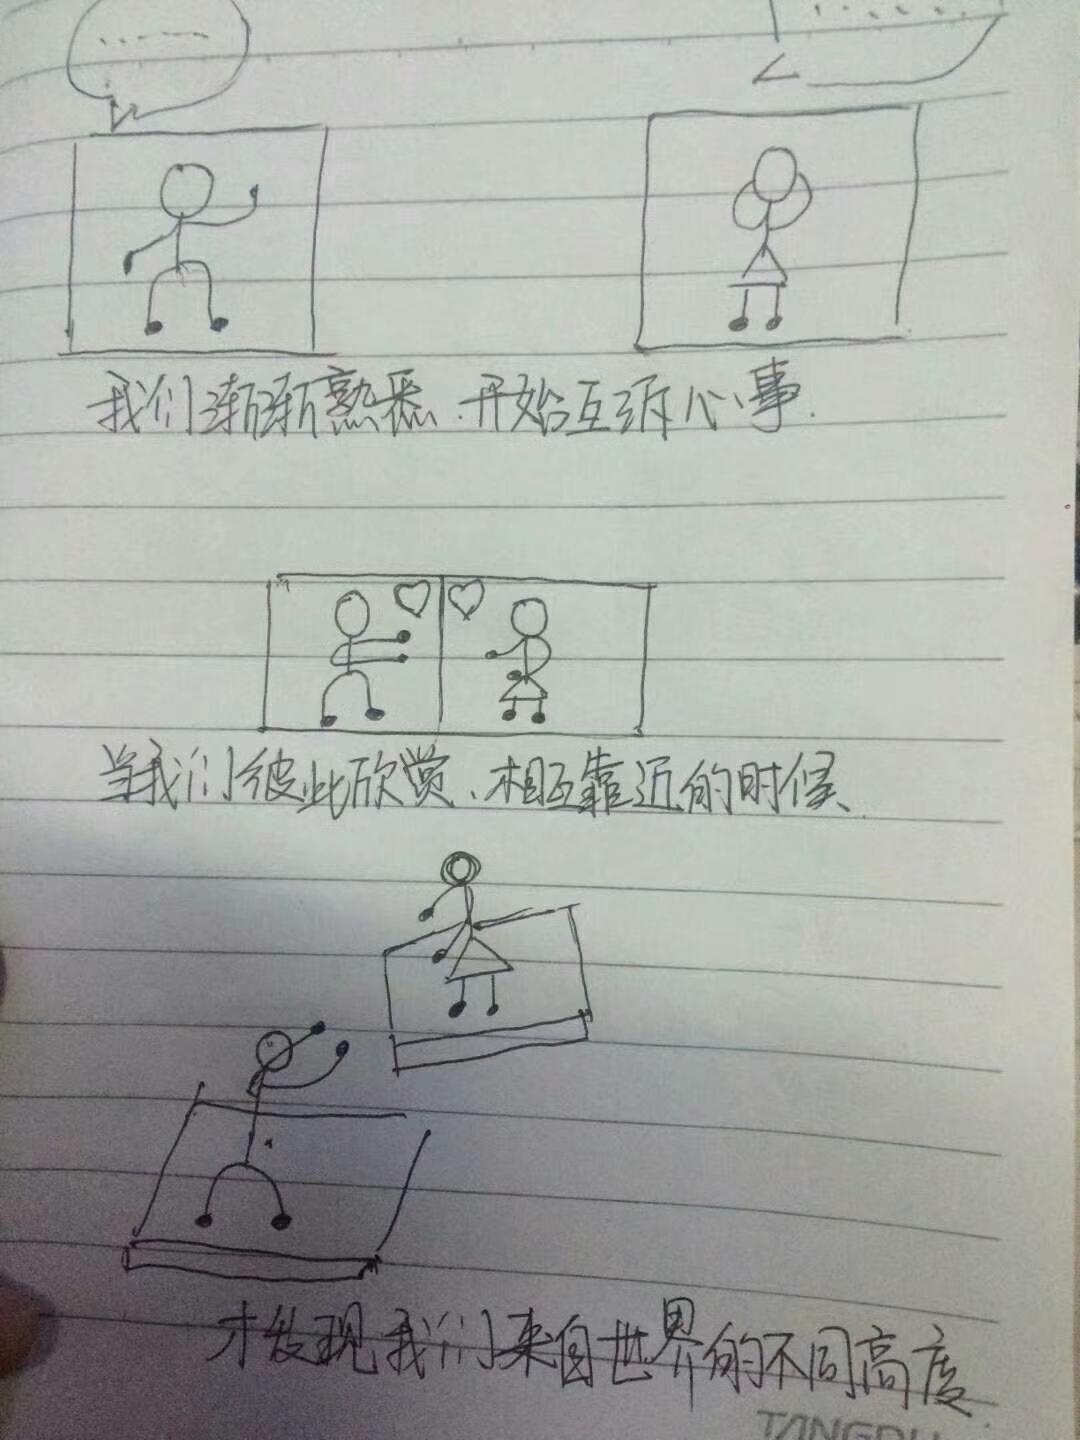 我们渐渐熟悉.开始互诉心事.
当我们彼此欣赏、相互靠近的时候、
才发现我们来自世界的不同高度.